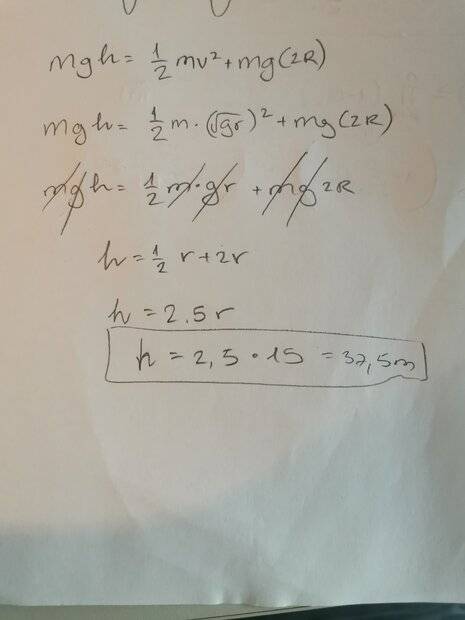 mgh = 1/2 mv² + mg(2R)
mgh = 1/2 m · (√gr)² + mg(2R)
mgh = 1/2 m · gr + mg 2R
h = 1/2 r + 2r
h = 2.5r
h = 2,5 · 15 = 37,5m